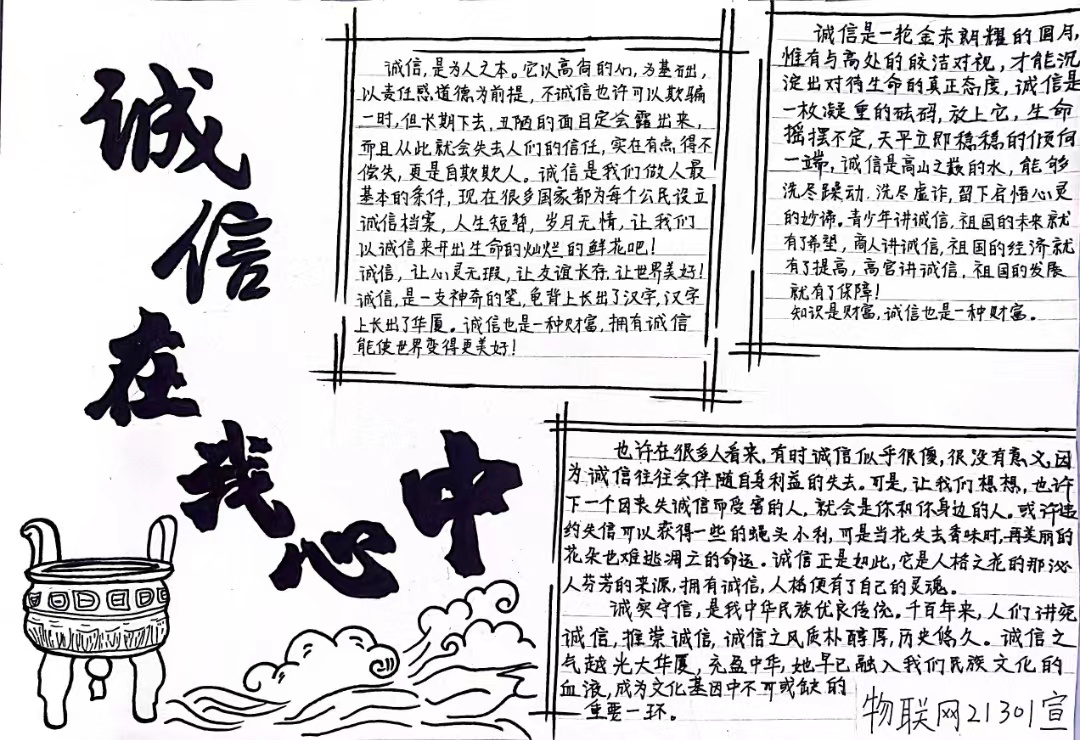 诚信在我心中
诚信,是为人之本。它以高尚的人们,为基础,
以责任感道德为前提,不诚信也许可以欺骗
一时,但长期下去,丑陋的面目定会露出来,
而且从此就会失去人们的信任,实在有点,得不
偿失,更是自欺欺人。诚信是我们做人最
基本的条件,现在很多国家都为每个公民设立
诚信档案,人生短暂,岁月无情,让我们
以诚信来开出生命的灿烂的鲜花吧!
诚信,让心灵无瑕,让友谊长存,让世界美好!
诚信,是一支神奇的笔,龟背上长出了汉字,汉字
上长出了华厦。诚信也是一种财富,拥有诚信
能使世界变得更美好!
诚信是一轮金赤朗耀的圆月,
惟有与高处的皎洁对视,才能沉
淀出对待生命的真正态度,诚信是
一枚凝重的砝码,放上它,生命
摇摆不定,天平立即稳稳的倾向
一端,诚信是高山之巅的水,能够
洗尽躁动,洗尽虚诈,留下启悟心灵
的妙谛。青少年讲诚信,祖国的未来就
有了希望,商人讲诚信,祖国的经济就
有了提高,高官讲诚信,祖国的发展
就有了保障!
知识是财富,诚信也是一种财富。
也许在很多人看来,有时诚信似乎很傻,很没有意义,因
为诚信往往会伴随自身利益的失去。可是,让我们想想,也许
下一个因丧失诚信而受害的人,就会是你和你身边的人。或许违
约失信可以获得一些的蝇头小利,可是当花失去香味时,再美丽的
花朵也难逃凋亡的命运。诚信正是如此,它是人格之花的那沁
人芬芳的来源,拥有诚信,人格便有了自己的灵魂。
诚实守信,是我中华民族优良传统。千百年来,人们讲究
诚信,推崇诚信,诚信之风质朴醇厚,历史悠久。诚信之
气越光大华厦,充盈中华,她早已融入我们民族文化的
血液,成为文化基因中不可或缺的
重要一环。
物联网21301宣